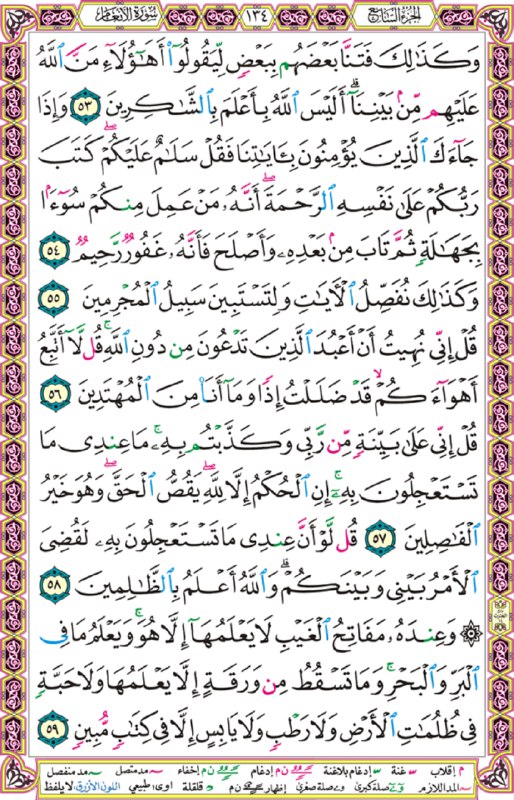 الجزء السابع ١٣٤ سورة الأنعام
وَكَذَٰلِكَ فَتَنَّا بَعْضَهُم بِبَعْضٍ لِّيَقُولُوٓا۟ أَهَٰٓؤُلَآءِ مَنَّ ٱللَّهُ
عَلَيْهِم مِّنۢ بَيْنِنَآ ۗ أَلَيْسَ ٱللَّهُ بِأَعْلَمَ بِٱلشَّٰكِرِينَ ٥٣ وَإِذَا
جَآءَكَ ٱلَّذِينَ يُؤْمِنُونَ بِـَٔايَٰتِنَا فَقُلْ سَلَٰمٌ عَلَيْكُمْ ۖ كَتَبَ
رَبُّكُمْ عَلَىٰ نَفْسِهِ ٱلرَّحْمَةَ ۖ أَنَّهُۥ مَنْ عَمِلَ مِنكُمْ سُوٓءًۢا
بِجَهَٰلَةٍ ثُمَّ تَابَ مِنۢ بَعْدِهِۦ وَأَصْلَحَ فَأَنَّهُۥ غَفُورٌ رَّحِيمٌ ٥٤
وَكَذَٰلِكَ نُفَصِّلُ ٱلْـَٔايَٰتِ وَلِتَسْتَبِينَ سَبِيلُ ٱلْمُجْرِمِينَ ٥٥
قُلْ إِنِّى نُهِيتُ أَنْ أَعْبُدَ ٱلَّذِينَ تَدْعُونَ مِن دُونِ ٱللَّهِ ۚ قُل لَّآ أَتَّبِعُ
أَهْوَآءَكُمْ ۙ قَدْ ضَلَلْتُ إِذًا وَمَآ أَنَا۠ مِنَ ٱلْمُهْتَدِينَ ٥٦
قُلْ إِنِّى عَلَىٰ بَيِّنَةٍ مِّن رَّبِّى وَكَذَّبْتُم بِهِۦ ۚ مَا عِندِى مَا
تَسْتَعْجِلُونَ بِهِۦٓ ۚ إِنِ ٱلْحُكْمُ إِلَّا لِلَّهِ ۖ يَقُصُّ ٱلْحَقَّ ۖ وَهُوَ خَيْرُ
ٱلْفَٰصِلِينَ ٥٧ قُل لَّوْ أَنَّ عِندِى مَا تَسْتَعْجِلُونَ بِهِۦ لَقُضِىَ
ٱلْأَمْرُ بَيْنِى وَبَيْنَكُمْ ۗ وَٱللَّهُ أَعْلَمُ بِٱلظَّٰلِمِينَ ٥٨
۞ وَعِندَهُۥ مَفَاتِحُ ٱلْغَيْبِ لَا يَعْلَمُهَآ إِلَّا هُوَ ۚ وَيَعْلَمُ مَا فِى
ٱلْبَرِّ وَٱلْبَحْرِ ۚ وَمَا تَسْقُطُ مِن وَرَقَةٍ إِلَّا يَعْلَمُهَا وَلَا حَبَّةٍ
فِى ظُلُمَٰتِ ٱلْأَرْضِ وَلَا رَطْبٍ وَلَا يَابِسٍ إِلَّا فِى كِتَٰبٍ مُّبِينٍ ٥٩
م إقلاب غنة إدغام بلاغنة ن م إدغام ن م إخفاء مد متصل مد منفصل
المد اللازم صلة كبرى وے صلة صغرى إظهار ن م قلقلة اوى: طبيعي اللون الأزرق: لا يلفظ